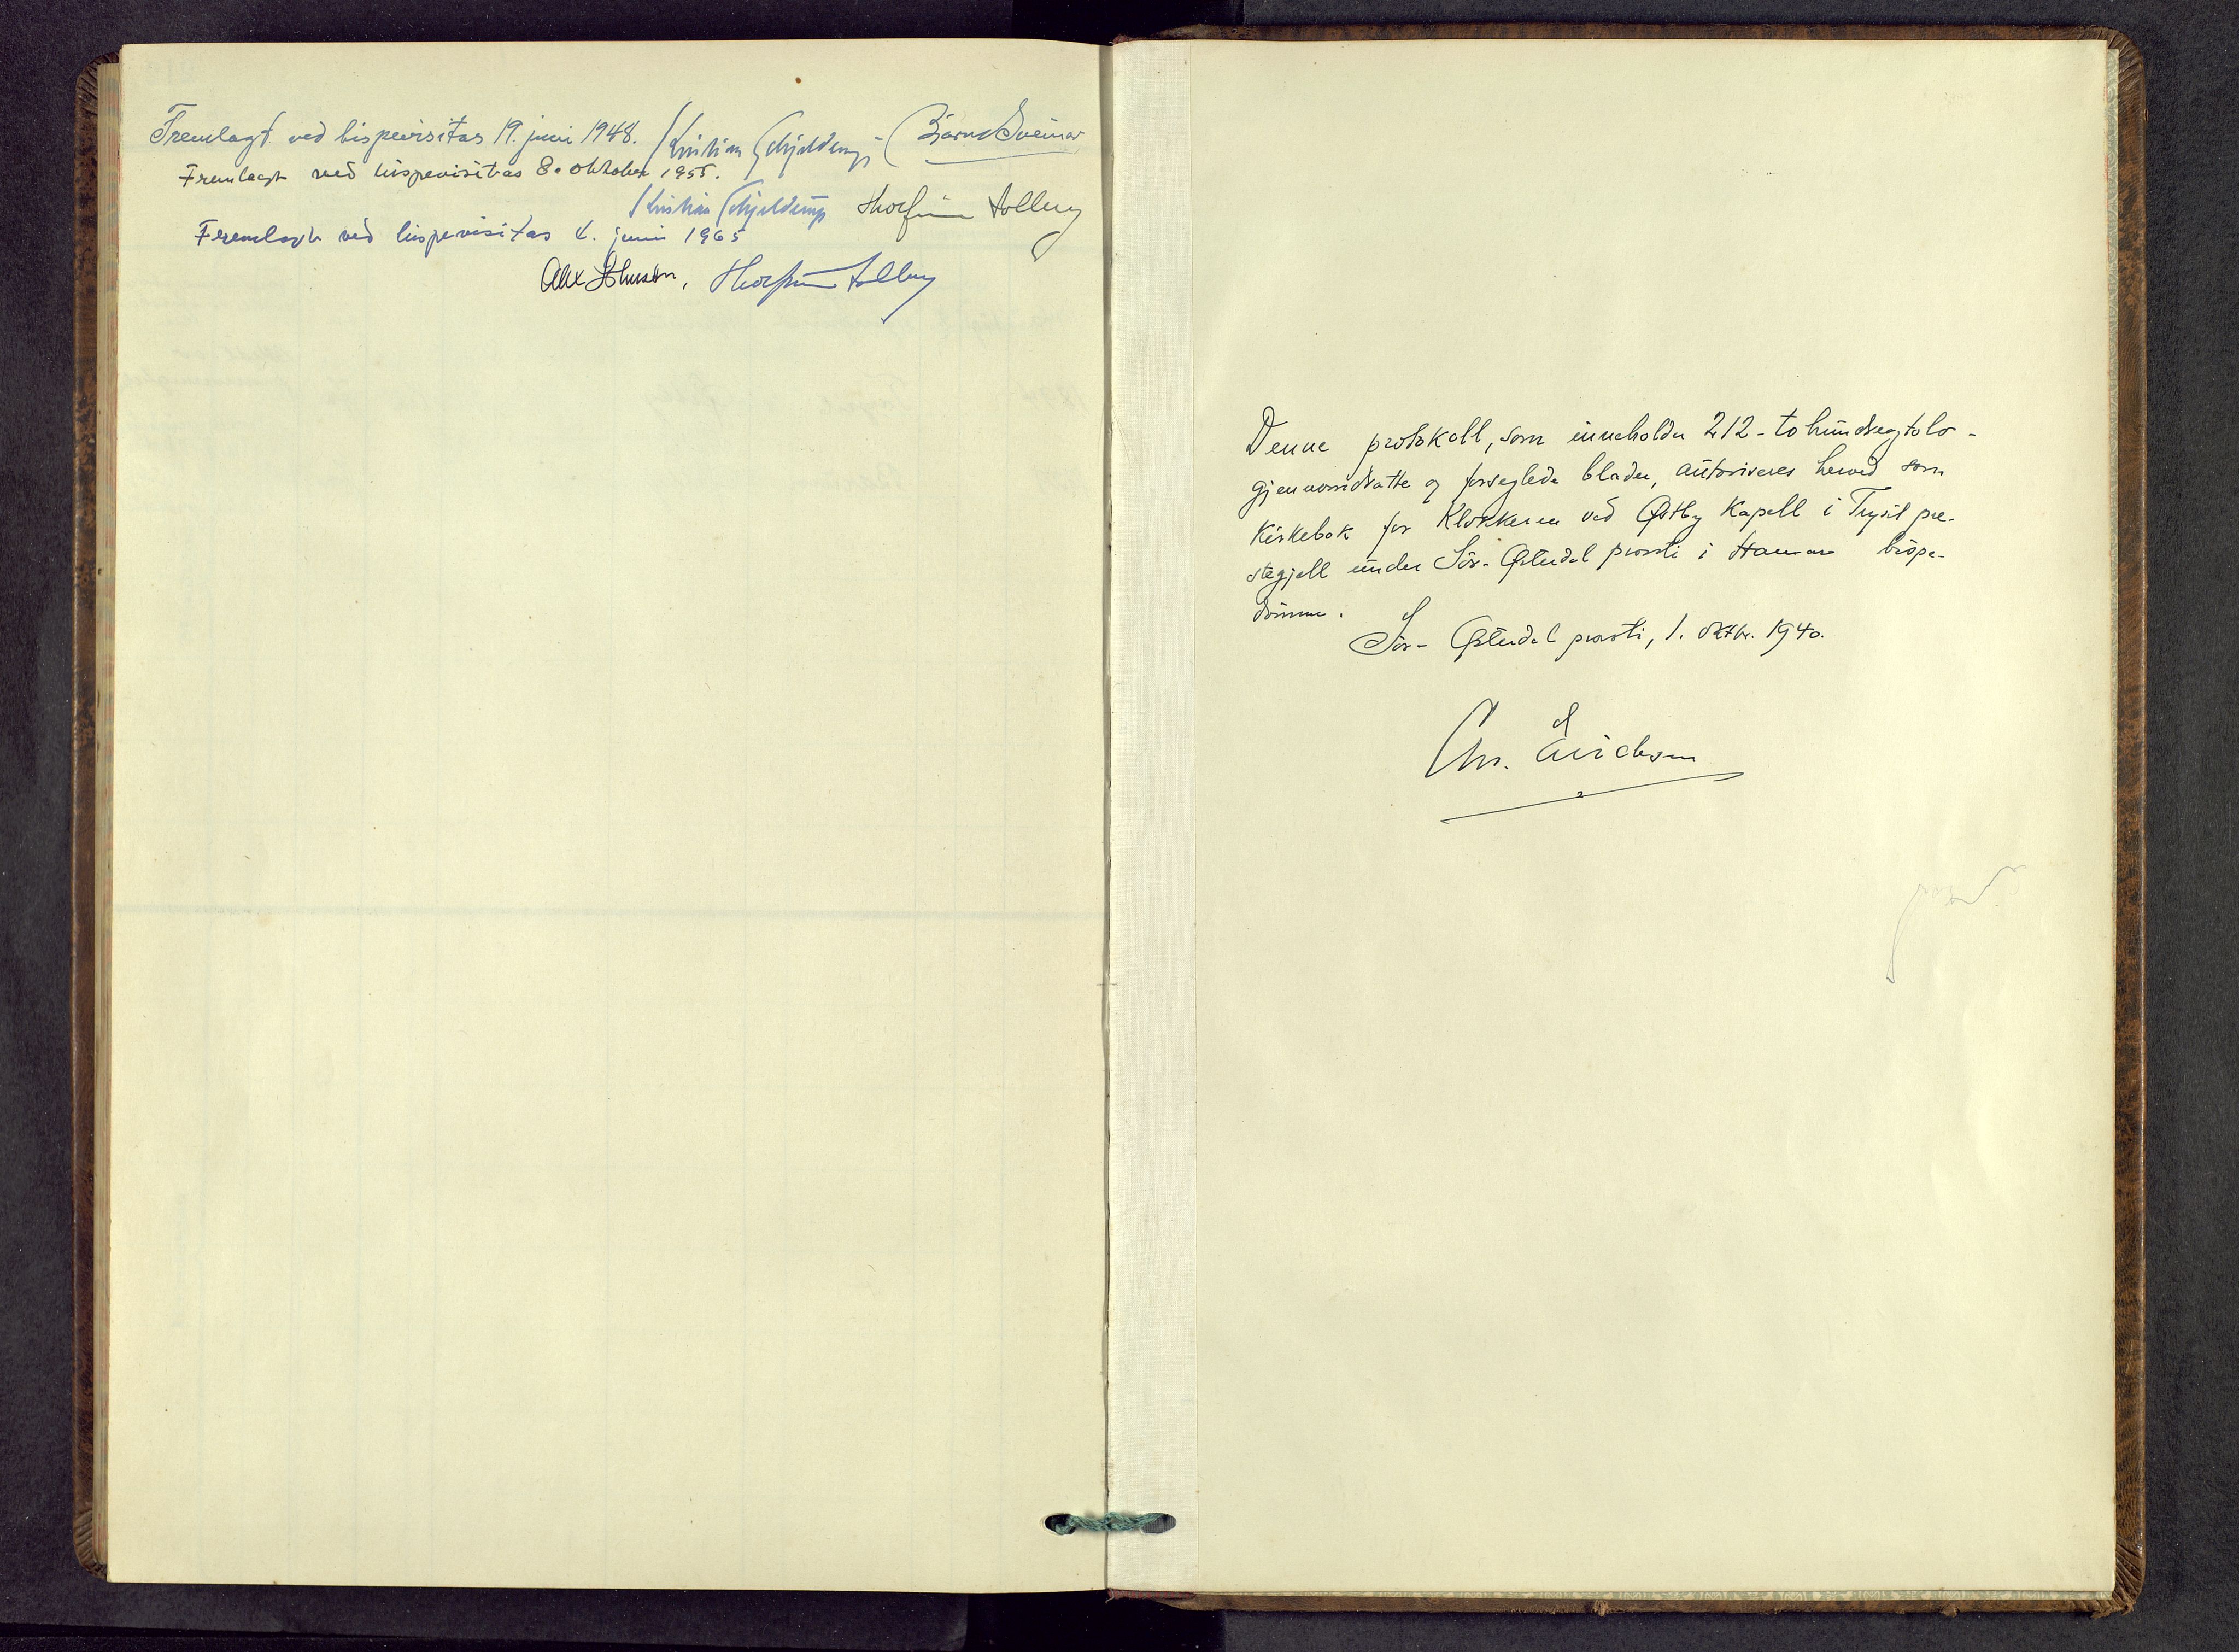 Fremlagt ved bispevisitas 19. juni 1948. Kristian Schjelderup Bjarne Sveinar
Fremlagt ved bispevisitas 8. oktober 1955.
Kristian Schjelderup Thorfinn Solberg
Fremlagt ved bispevisitas 4. juni 1965
Alex Johnson, Thorfinn Solberg
Denne protokoll, som inneholder 212 - tohundreogtolv -
gjennomdratte og forseglede blader, autoriseres herved som
Kirkebok for Klokkeren ved Østby Kapell i Trysil pre-
stegjell under Sør-Østerdal prosti i Hamar bispe-
dømme.
Sør-Østerdal prosti, 1. oktbr. 1940.
Chr. Erichsen